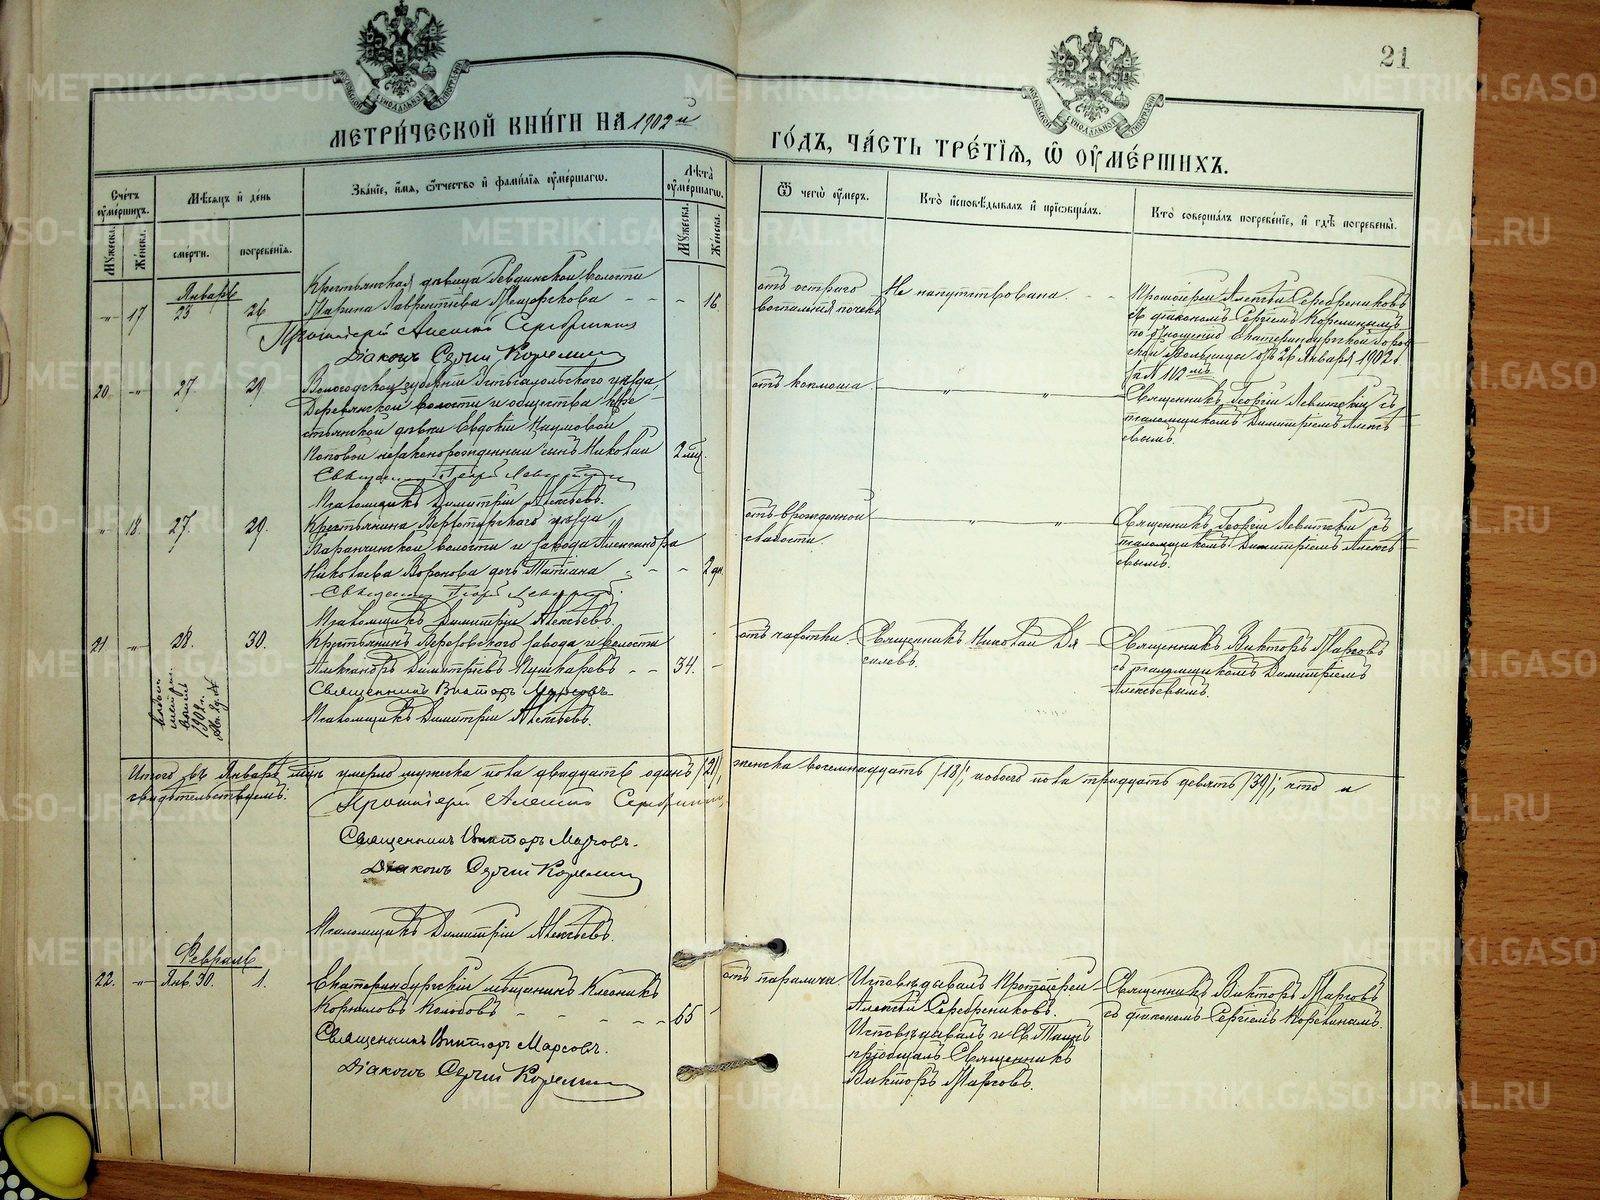 21
МЕТРИЧЕСКОЙ КНИГИ НА 1902 й
ГОДЪ, ЧАСТЬ ТРЕТІЯ, Ѿ ОУМЕРШИХЪ.
Счетъ оумершихъ.
Мѣсяцъ и день
Званіе, имя, ѻтчество и фамилія оумершагѡ.
Лѣта оумершагѡ.
Ѿ чегѡ оумеръ.
Кто исповѣдывалъ и пріѡбщалъ.
Кто совершалъ погребеніе, и гдѣ погребены.
Мужеска.
Женска.
смерти.
погребенія.
Мужеска.
Женска.
Январь
Крестьянская дѣвица Ревдинской волости
17 23 26
Марина Лаврентьева - - - 16.
Протоіерей Алексій Серебрениковъ
Діаконъ Сергій Корелинъ
отъ остраго
воспаленія почекъ
Не напутствована.
Протоіерей Алексѣй Серебрениковъ
съ діакономъ Сергіемъ Корелинымъ
по отношенію Екатеринбургской Город-
ской больницы отъ 26 Января 1902 г.
за № 102 мъ
20 27 29
Вологодской губерніи Устьсысольскаго уѣзда,
Деревянской волости и общества кре-
стьянской дѣвки Евдокіи Наумовой
Поповой незаконорожденный сынъ Николай 2 мѣс.
Священникъ Георгій Левитскій
Псаломщикъ Димитрій Алексѣевъ.
отъ коклюша.
Священникъ Георгій Левитскій съ
псаломщикомъ Димитріемъ Алексѣ-
евымъ.
18. 27. 29.
Крестьянина Верхотурскаго уѣзда,
Баранчинской волости и завода Александра
Николаева Воронова дочь Татіана - - 2 дн.
Священникъ Георгій Левитскій
Псаломщикъ Димитрій Алексѣевъ.
отъ врожденной
слабости.
Священникъ Георгій Левитскій съ
псаломщикомъ Димитріемъ Алексѣ-
евымъ.
21 28. 30.
Крестьянинъ Березовскаго завода и волости
Александръ Димитріевъ Пушкаревъ - - 34.
Священникъ Викторъ Марсовъ
Псаломщикъ Димитрій Алексѣевъ.
1902 г.
отъ чахотки.
Священникъ Николай
Священникъ Викторъ Марсовъ
съ псаломщикомъ Димитріемъ
Алексѣевымъ.
Итого въ Январѣ мцѣ умерло мужеска пола двадцать одинъ /21/, женска восемнадцать /18/; обоего пола тридцать девять /39/; что и
свидѣтельствуемъ:
Протоіерей Алексій Серебрениковъ
Священникъ Викторъ Марсовъ.
Діаконъ Сергій Корелинъ
Псаломщикъ Димитрій Алексѣевъ.
Февраль
22. Янв. 30. 1.
Екатеринбургскій мѣщанинъ Клеоникъ
Корниловъ Колобовъ - - - - 65
Священникъ Викторъ Марсовъ.
Діаконъ Сергій Корелинъ
отъ паралича
Исповѣдывалъ Протоіерей
Алексѣй Серебрениковъ.
Исповѣдывалъ и Св. Таинъ
пріобщалъ Священникъ
Викторъ Марсовъ.
Священникъ Викторъ Марсовъ
съ діакономъ Сергіемъ Корелинымъ.
METRIKI.GASO-URAL.RU